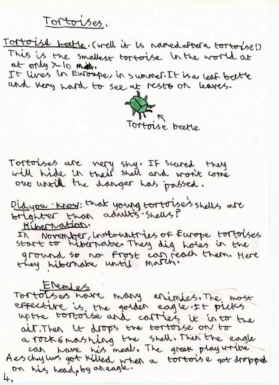 Tortoises.
Tortoise beetle. (well it is named after a tortoise!)
This is the smallest tortoise in the world at
at only
It lives in Europe, in summer. It is a leaf beetle
and very hard to see at rest on leaves.
Tortoise beetle
Tortoises are very shy. If scared they
will hide in their shell and won't come
out until the danger has passed.
Did you know: that young tortoise's shells are
brighter than adults shells?
Hibernation.
In November, in countries of Europe tortoises
start to hibernate. They dig holes in the
ground so no frost can reach them. Here
they hibernate until march.
Enemies
Tortoises have many enimies. The most
effective is the golden eagle. It picks
up the tortoise and carries it into the
air. Then it drops the tortoise on to
a rock smashing the shell. Then the eagle
can have his meal. The greek playwrite
Aeschylus got killed, when a tortoise got dropped
on his head, by an eagle.
4.